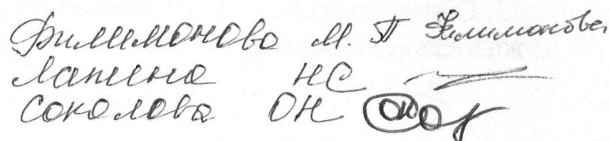 Филимонова М. П Филимонова
Лапина НС
Соколова ОН